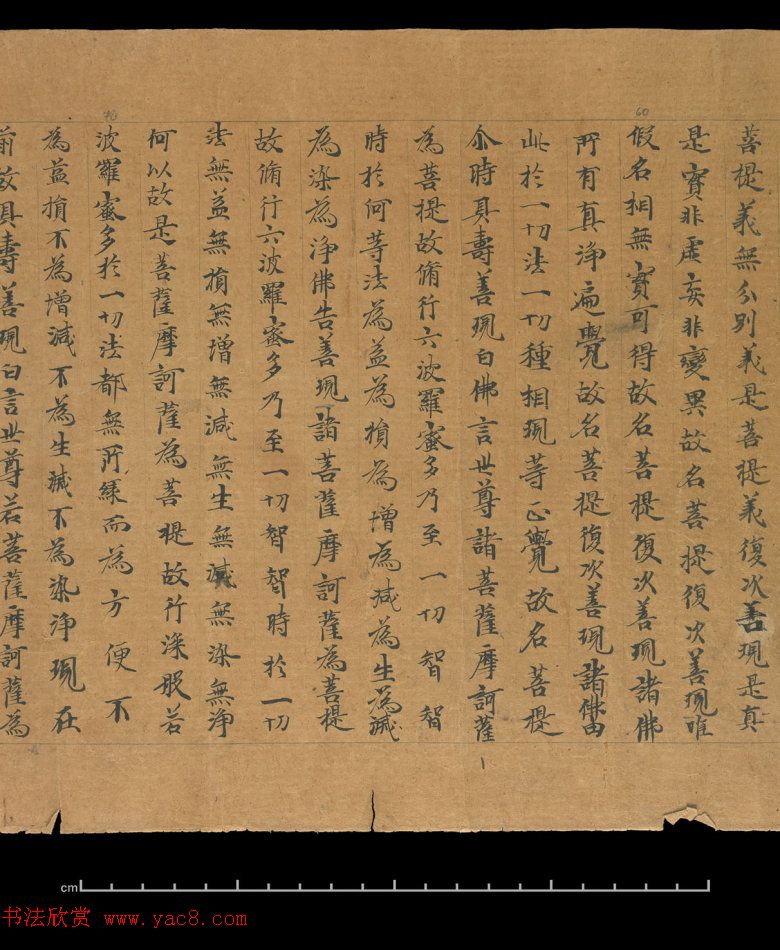 60
70
菩提義無分別義是菩提義復次善現是真
是實非虛妄非變異故名菩提復次善現唯
假名相無實可得故名菩提復次善現諸佛
所有真淨遍覺故名菩提復次善現諸佛由
此於一切法一切種相現等正覺故名菩提
尒時具壽善現白佛言世尊諸菩薩摩訶薩
為菩提故脩行六波羅蜜多乃至一切智智
時於何等法為益為損為增為減為生為滅
為染為淨佛告善現諸菩薩摩訶薩為菩提
故脩行六波羅蜜多乃至一切智智時於一切
法無益無損無增無減無生無滅無染無淨
何以故是菩薩摩訶薩為菩提故行深般若
波羅蜜多於一切法都無所緣而為方便不
為益損不為增減不為生滅不為染淨現在
前故具壽善現白言世尊若菩薩摩訶薩為
cm
书法欣赏 www.yac8.com